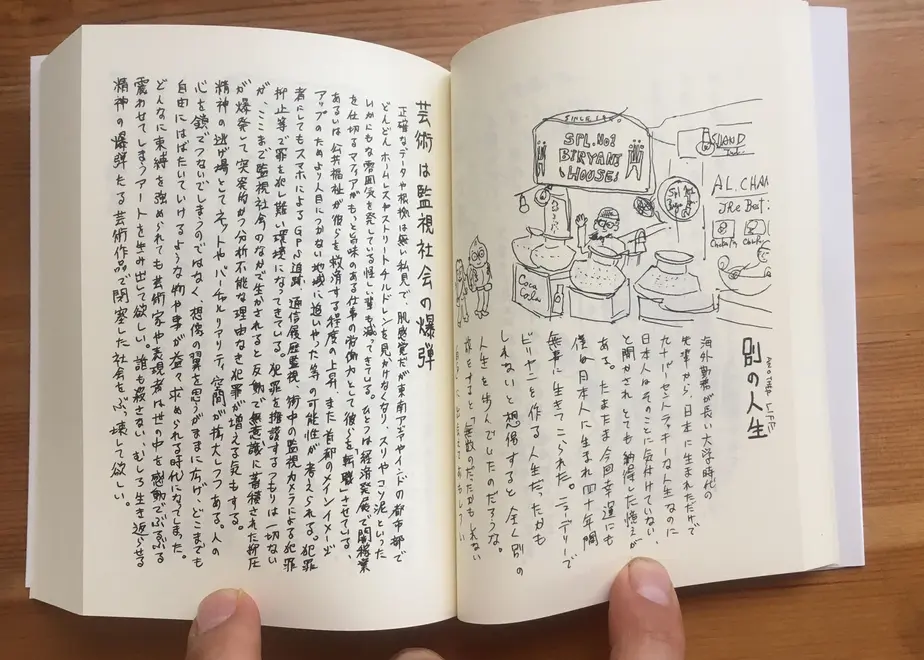 SPL.No1
BIRYANI
HOUSE!
AL.CHA
Coca
Cola
別の人生
海外勤務が長い大学時代の
先輩から、日本に生まれただけで
九十パーセントラッキーな人生なのに
日本人はそのことに気付けていない
と聞かされとても納得した憶えが
ある。たまたま今回幸運にも
僕は日本人に生まれ四十年間
無事に生きてこられた。ニューデリーで
ビリヤニを作る人生だったかも
しれないと想像すると全く別の
人生を歩んでいたのだろうな。
旅をすると「無数のだったかもしれない
芸術は監視社会の爆弾
正確なデータや根拠は無い私見で、肌感覚だが東南アジアやインドの都市部で
どんどんホームレスやストリートチルドレンを見かけなくなり、スリやコソ泥といった
いかにもな雰囲気を発している怪しい輩も減ってきている。ひとつは経済発展で闇稼業
を仕切るマフィアがもっと旨味のある仕事の労働力として彼らを「転職」させている、
あるいは公共福祉が彼らを救済する程度の上昇、また首都のメインイメージ
アップのためより人目につかない地域に追いやった等の可能性が考えられる。犯罪
者にしてもスマホによるGPS追跡、通信履歴監視、街中の監視カメラによる犯罪
抑止等で罪を犯し難い環境になってきている。犯罪を擁護するつもりは一切ない
が、ここまで監視社会のなかで生かされると反動で無意識に蓄積された抑圧
が爆発して突発的かつ分析不能な理由なき犯罪が増える気もする。
精神の逃げ場としてネットやバーチャルリアリティ空間が拡大しつつある。人の
心を鎖でつないでしまうのではなく、想像の翼を思うがままに広げ、どこまでも
自由にはばたいていけるような物や事が益々求められる時代になってしまった。
どんなに束縛を強められても芸術家や表現者は世の中を感動でぶるぶる
震わせてしまうアートを生み出して欲しい。誰も殺さない、むしろ生き返らせる
精神の爆弾たる芸術作品で閉塞した社会をぶっ壊して欲しい。